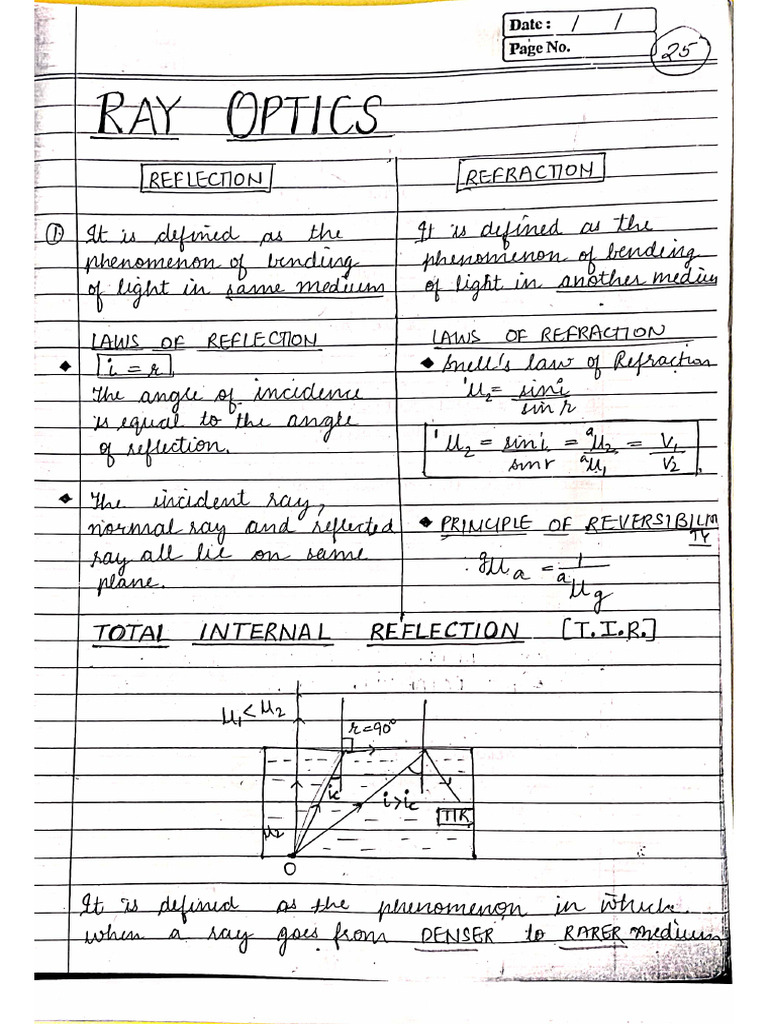 Date : / /
Page No.
25
RAY OPTICS
REFLECTION
① It is defined as the
phenomenon of bending
of light in same medium
LAWS OF REFLECTION
◆ i = r
The angle of incidence
is equal to the angle
of reflection.
◆ The incident ray,
normal ray and reflected
ray all lie on same
plane.
REFRACTION
It is defined as the
phenomenon of bending
of light in another medium
LAWS OF REFRACTION
◆ Snell's law of Refraction
¹μ₂ = sin i / sin r
¹μ₂ = sin i / sin r = ᵃμ₂ / ᵃμ₁ = V₁ / V₂.
◆ PRINCIPLE OF REVERSIBILI
TY
ᵍμₐ = 1 / ᵃμg
TOTAL INTERNAL REFLECTION [T.I.R.]
μ₁ < μ₂
r = 90°
ic
i > ic
TIR
μ₂
O
It is defined as the phenomenon in which
when a ray goes from DENSER to RARER medium